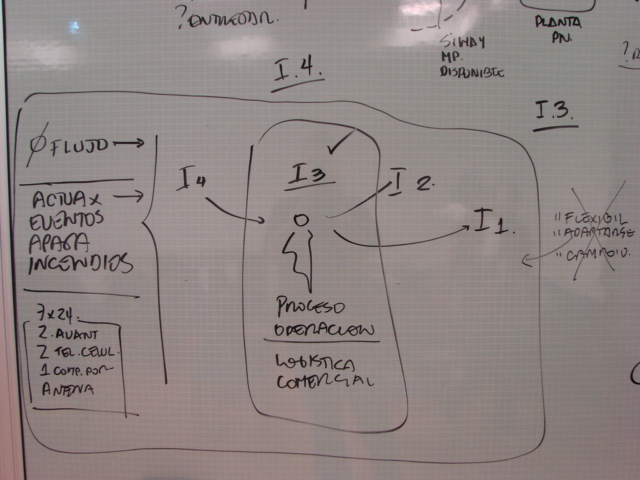 ? ENTREGAR.
SI HAY
MP.
DISPONIBLE
PLANTA
PN.
I.4.
I.3.
Ø FLUJO
ACTUA X
EVENTOS
APAGA
INCENDIOS
7x24.
2. AVANT
2 TEL. CELUL.
1 COMP. POR-
ANTENA
I4
I3
I 2.
I1.
PROCESO
OPERACION
LOGISTICA
COMERCIAL
"FLEXIBIL
"ADAPTARSE
"CAMBIO.